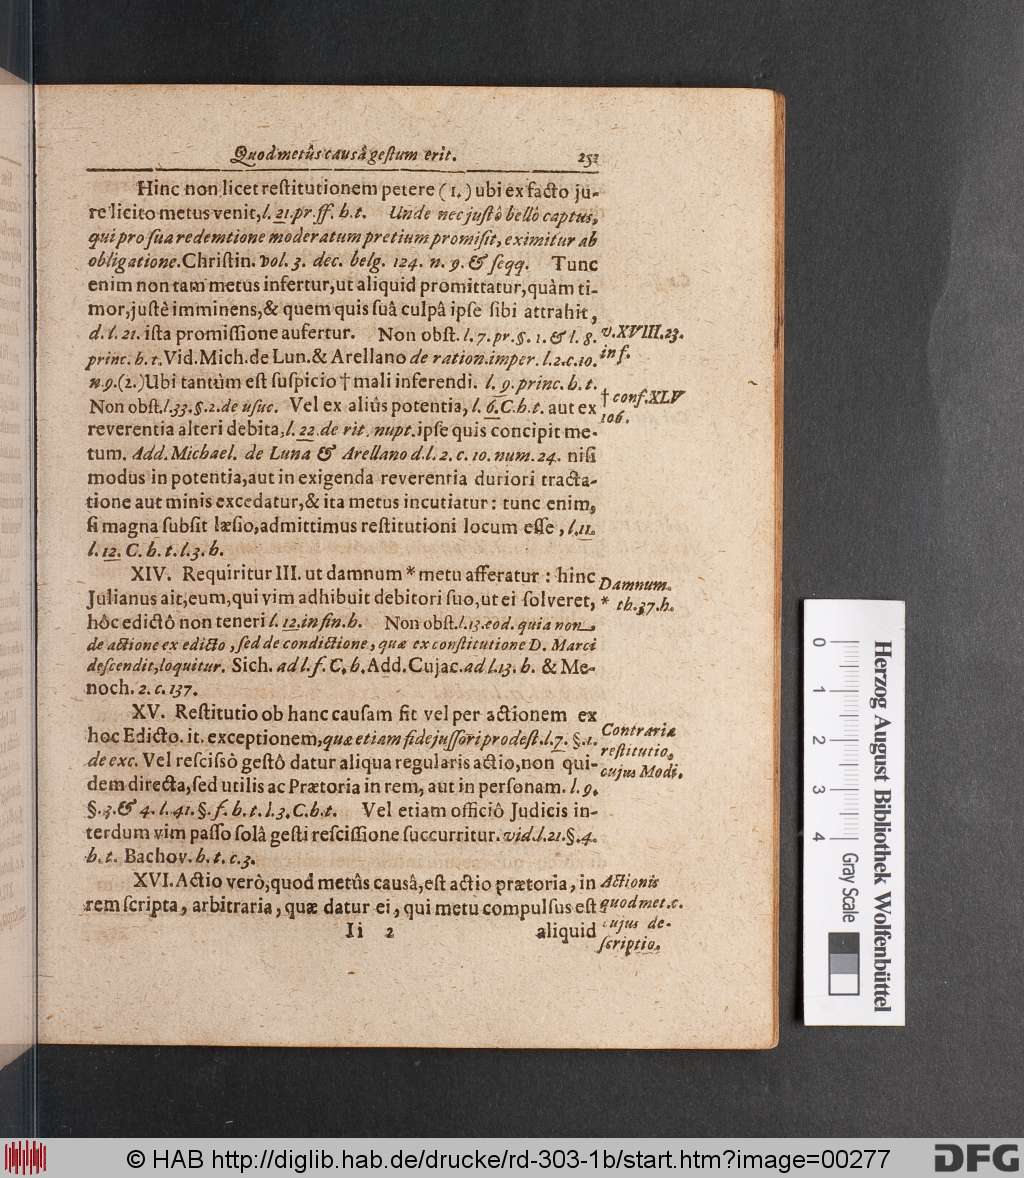 Quod metûs causâ gestum erit. 251
Hinc non licet restitutionem petere (1.) ubi ex facto ju-
re licito metus venit, l. 21. pr. ff. h. t. Unde nec justô bellô captus,
qui pro sua redemtione moderatum pretium promisit, eximitur ab
obligatione. Christin. vol. 3. dec. belg. 124. n. 9. & seqq. Tunc
enim non tam metus infertur, ut aliquid promittatur, quàm ti-
mor, justè imminens, & quem quis suâ culpâ ipse sibi attrahit,
d. l. 21. ista promissione aufertur. Non obst. l. 7. pr. §. 1. & l. 8.
v. XVIII. 23.
princ. h. t. Vid. Mich. de Lun. & Arellano de ration. imper. l. 2. c. 10.
inf.
n. 9. (2.) Ubi tantùm est suspicio † mali inferendi. l. 9. princ. h. t.
† conf. XLV
Non obst. l. 33. §. 2. de usuc. Vel ex aliûs potentia, l. 6. C. h. t. aut ex
106.
reverentia alteri debita, l. 22. de rit. nupt. ipse quis concipit me-
tum. Add. Michael. de Luna & Arellano d. l. 2. c. 10. num. 24. nisi
modus in potentia, aut in exigenda reverentia duriori tracta-
tione aut minis excedatur, & ita metus incutiatur: tunc enim,
si magna subsit læsio, admittimus restitutioni locum esse, l. 11.
l. 12. C. h. t. l. 3. h.
XIV. Requiritur III. ut damnum * metu afferatur: hinc
Damnum.
Julianus ait, eum, qui vim adhibuit debitori suo, ut ei solveret,
* th. 37. h.
hôc edictô non teneri l. 12. in fin. h. Non obst. l. 13. eod. quia non
de actione ex edicto, sed de condictione, quæ ex constitutione D. Marci
descendit, loquitur. Sich. ad l. f. C. h. Add. Cujac. ad l. 13. h. & Me-
noch. 2. c. 137.
XV. Restitutio ob hanc causam fit vel per actionem ex
hoc Edicto. it. exceptionem, quæ etiam fidejussori prodest. l. 7. §. 1.
Contrariæ
de exc. Vel rescissô gestô datur aliqua regularis actio, non qui-
restitutio,
cujus Modi.
dem directa, sed utilis ac Prætoria in rem, aut in personam. l. 9.
§. 3. & 4. l. 41. §. f. h. t. l. 3. C. h. t. Vel etiam officiô Judicis in-
terdum vim passo solâ gesti rescissione succurritur. vid. l. 21. §. 4.
h. t. Bachov. h. t. c. 3.
XVI. Actio verò, quod metûs causâ, est actio prætoria, in
Actionis
rem scripta, arbitraria, quæ datur ei, qui metu compulsus est
quod met. c.
cujus de-
scriptio.
Ii 2 aliquid
Herzog August Bibliothek Wolfenbüttel
0 1 2 3 4 Gray Scale
© HAB http://diglib.hab.de/drucke/rd-303-1b/start.htm?image=00277
DFG